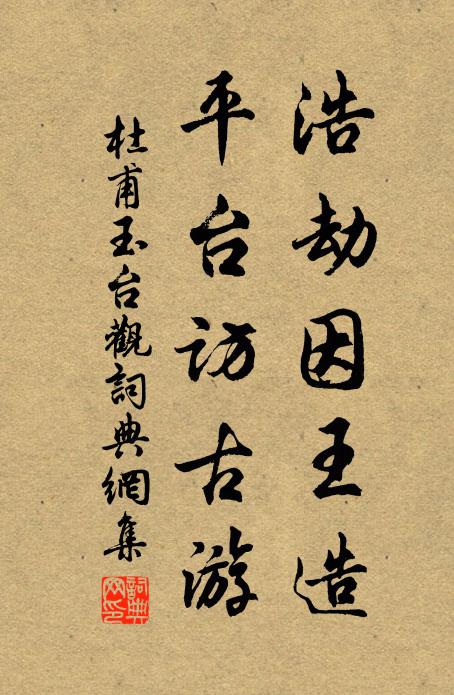 浩劫因王造
平台访古游
杜甫玉台觀詞典網集
詞典网印